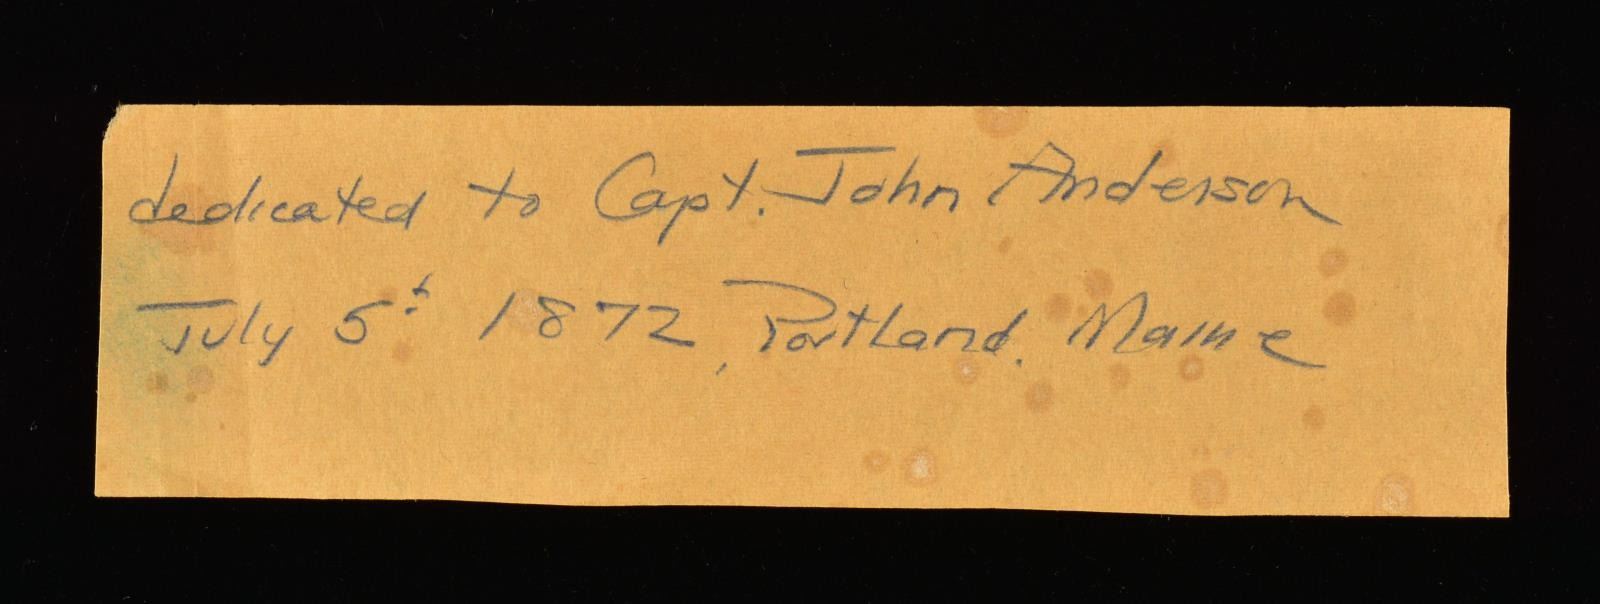 dedicated to Capt. John Anderson
July 5t 1872, Portland. Maine